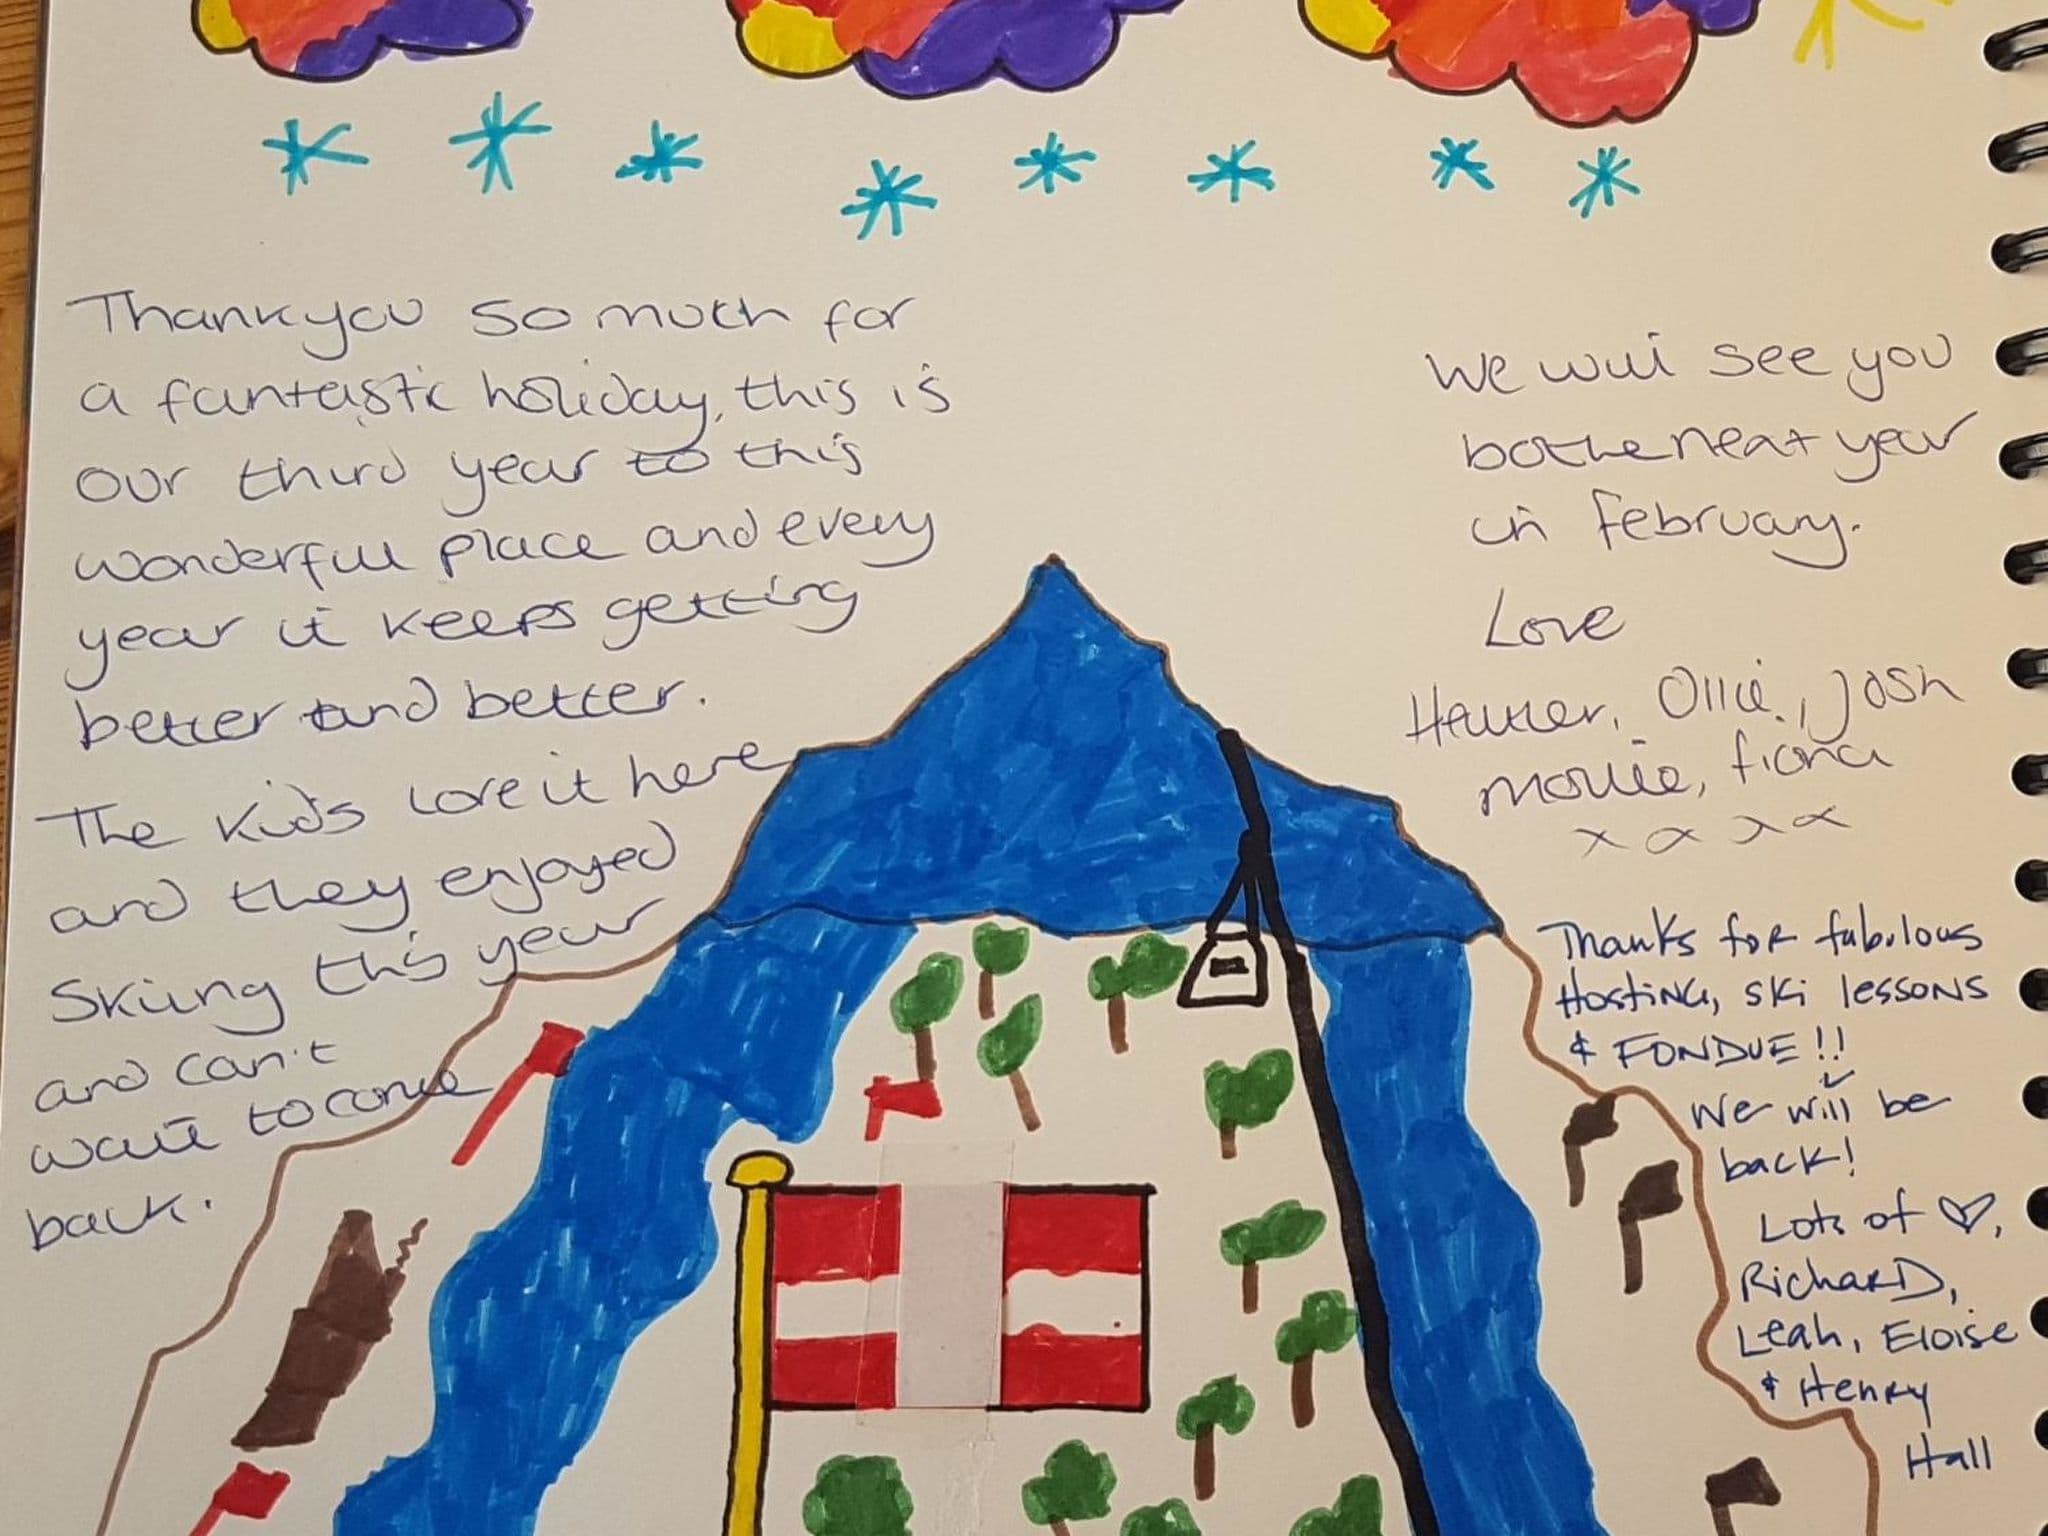 Thankyou so much for
a fantastic holiday, this is
our third year to this
wonderful place and every
year it keeps getting
better and better.
The kids love it here
and they enjoyed
Skiing this year
and can't
wait to come
back.
We will see you
both next year
in February.
Love
Heather, Ollie, Josh
Mollie, fiona
x x x x
Thanks for fabulous
Hosting, ski lessons
& FONDUE!!
We will be
back!
Lots of ♡,
Richard,
Leah, Eloise
& Henry
Hall